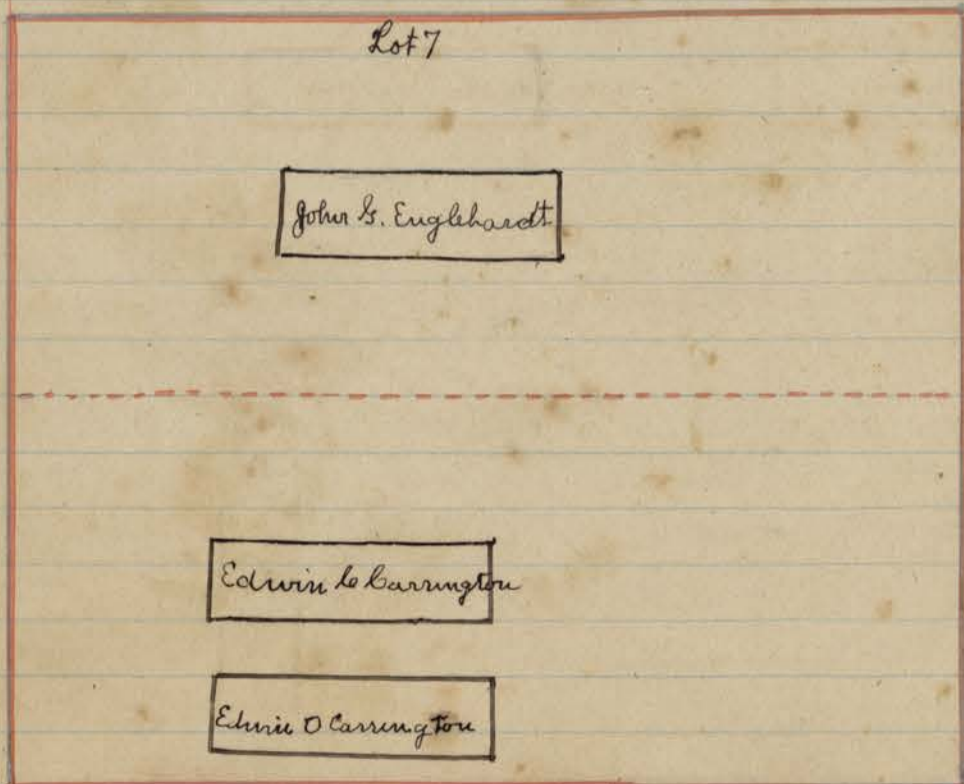 Lot 7
John G. Englehardt
Edwin C Carrington
Edwin O Carrington